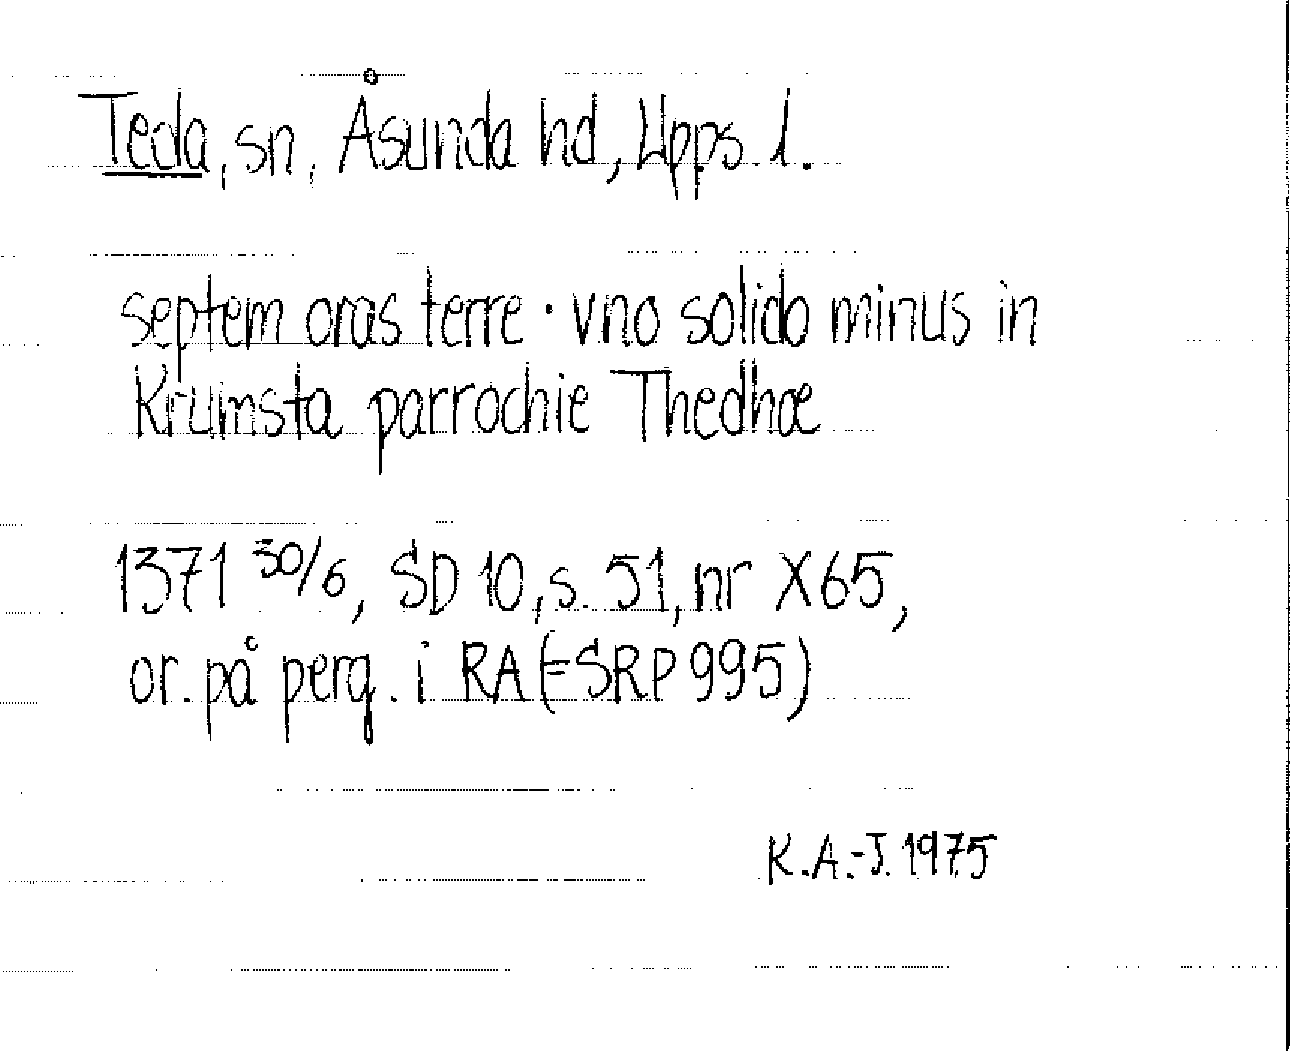 Teda, sn, Åsunda hd, Upps. l.
septem oras terre · vno solido minus in
Krumsta parrochie Thedhæ
1371 30/6, SD 10, s. 51, nr X65,
or. på perg. i RA (=SRP 995)
K.A.-J. 1975